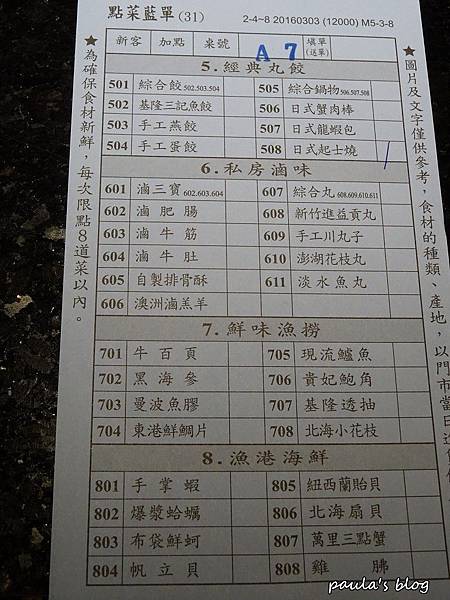 點菜藍單(31)
2-4~8 20160303 (12000) M5-3-8
新客 加點 桌號 A 7 填單(送菜)
★為確保食材新鮮，每次限點8道菜以內。
5.經典丸餃
501 綜合餃502.503.504 505 綜合鍋物506.507.508
502 基隆三記魚餃 506 日式蟹肉棒
503 手工燕餃 507 日式龍蝦包
504 手工蛋餃 508 日式起士燒 /
6.私房滷味
601 滷三寶602.603.604 607 綜合丸608.609.610.611
602 滷肥腸 608 新竹進益貢丸
603 滷牛筋 609 手工川丸子
604 滷牛肚 610 澎湖花枝丸
605 自製排骨酥 611 淡水魚丸
606 澳洲滷羔羊
7.鮮味漁撈
701 牛百頁 705 現流鱸魚
702 黑海參 706 貴妃鮑角
703 曼波魚膠 707 基隆透抽
704 東港鮮鯛片 708 北海小花枝
8.漁港海鮮
801 手掌蝦 805 紐西蘭貽貝
802 爆漿蛤蠣 806 北海扇貝
803 布袋鮮蚵 807 萬里三點蟹
804 帆立貝 808 雞腓
★圖片及文字僅供參考，食材的種類、產地，以門市當日
paula's blog